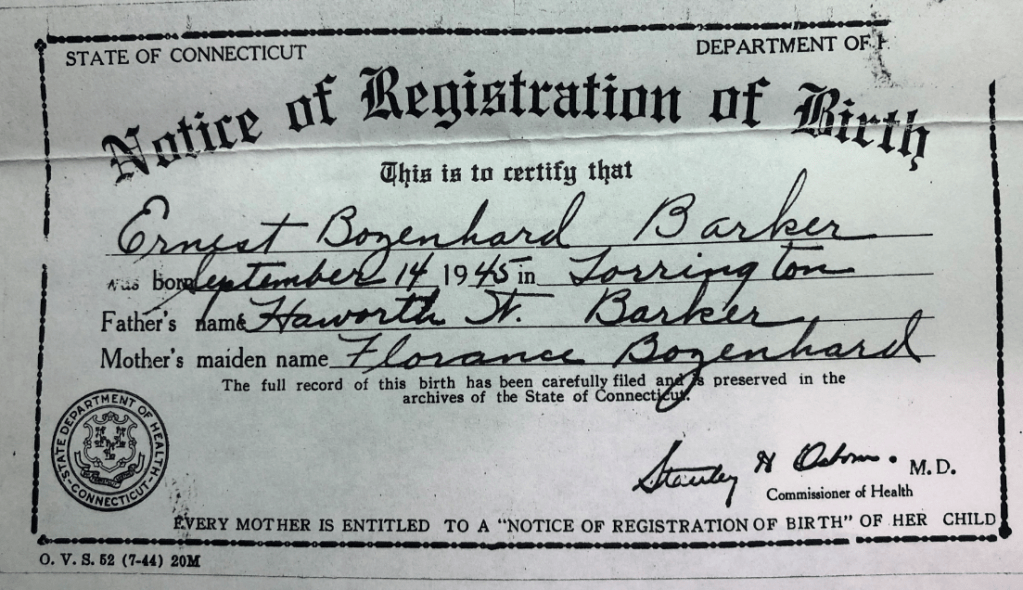 STATE OF CONNECTICUT DEPARTMENT OF
Notice of Registration of Birth
This is to certify that
Ernest Bozenhard Barker
was born September 14 1945 in Torrington
Father's name Haworth W. Barker
Mother's maiden name Florance Bozenhard
The full record of this birth has been carefully filed and is preserved in the
archives of the State of Connecticut.
STATE DEPARTMENT OF HEALTH
CONNECTICUT
Stanley H Osborn. M.D.
Commissioner of Health
EVERY MOTHER IS ENTITLED TO A "NOTICE OF REGISTRATION OF BIRTH" OF HER CHILD
O. V. S. 52 (7-44) 20M